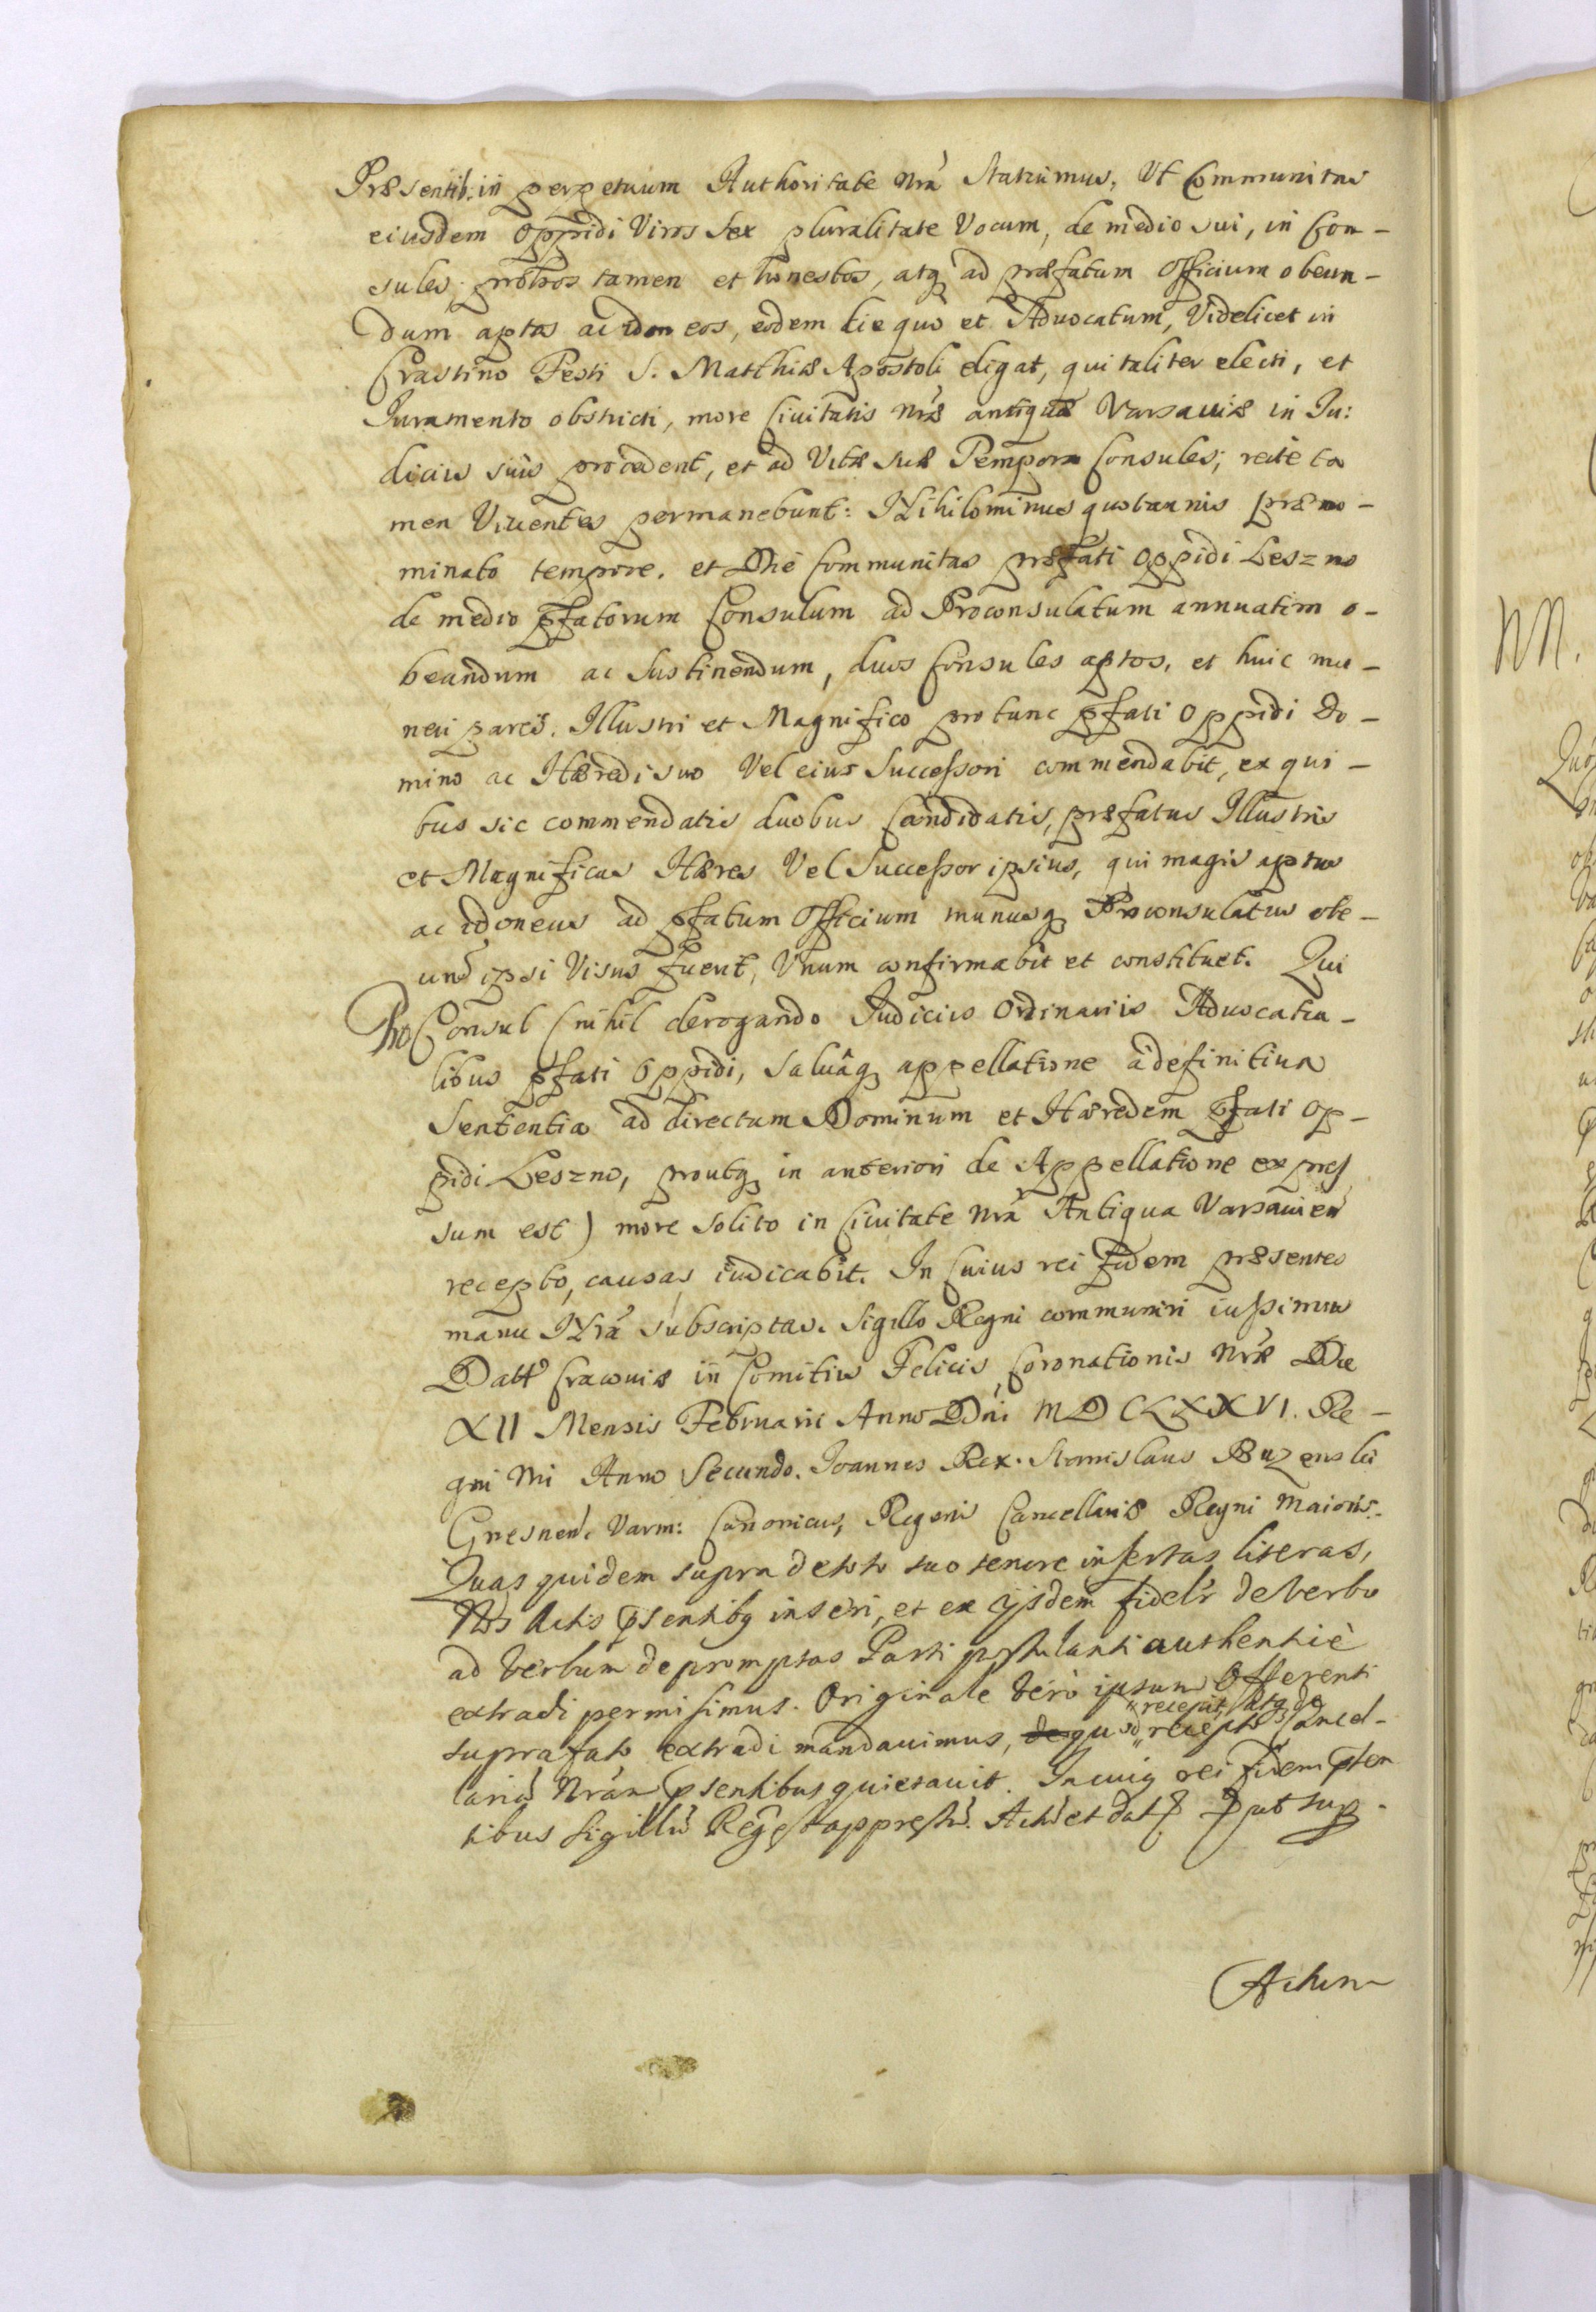 Præsentib: in perpetuum Authoritate nrã Statuimus, Ut Communitas
eiusdem Oppidi Viros Sex pluralitate Vocum, de medio sui, in Con-
sules, probos tamen et honestos, atq ad præfatum Officium obeun-
dum aptos ac idoneos, eodem die quo et Advocatum, Videlicet in
Crastino Festi S. Matthiæ Apostoli eligat, qui taliter electi, et
Iuramento obstricti, more Civitatis nræ antiquæ Varsaviæ in Iu:
diciis suis procedent, et ad Vitæ suæ Tempora Consules, recte ta
men Viventes permanebunt: Nihilominus quotannis præno-
minato tempore, et Die Communitas præfati Oppidi Leszno
de medio pfatorum Consulum ad Proconsulatum annuatim o-
beundum ac Sustinendum, duos Consules aptos, et huic mu-
neri pares, Illustri et Magnifico pro tunc pfati Oppidi Do-
mino ac Hæredi suo Vel eius Successori commendabit, ex qui-
bus sic commendatis duobus Candidatis, præfatus Illustris
et Magnificus Hæres Vel Successor ipsius, qui magis aptus
ac idoneus ad pfatum Officium munusq Proconsulatus obe-
und ipsi Visus fuerit, Unum confirmabit et constituet. Qui
Pro Consul (nihil derogando Iudiciis Ordinariis Advocatia-
libus pfati Oppidi, salvâq appellatione à definitiva
Sententia ad directum Dominum et Hæredem pfati Op-
pidi Leszno, proutq in anteriori de Appellatione expres
sum est) more solito in Civitate nrã Antiqua Varsavien
recepto, causas iudicabit. In Cuius rei fidem præsentes
manu Nrã subscriptas. Sigillo Regni communiri iussimus
Datt Cracoviæ in Comitiis Felicis Coronationis Nræ Die
XII Mensis Februarii Anno Dni MDCLXXVI. Re-
gni Nri Anno Secundo. Joannes Rex. Stanislaus Buzenski
Gnesnen: Varm: Canonicus, Regens Cancellariæ Regni Maioris.
Quas quidem supra de toto suo tenore insertas literas,
Nos Actis psentibq inseri, et ex ijsdem fidelr de verbo
ad verbum depromptas Parti postulanti authenticè
extradi permisimus. Originale verò ipsum Offerenti
" recepit, atq de
suprafato extradi mandavimus, de quo " recepto Cancel-
lariã Nrãm psentibus quietavit. In cuiq rei fidem psen
tibus Sigillũ Regni est appressũ. Actũ et dat ut sup.
Actum